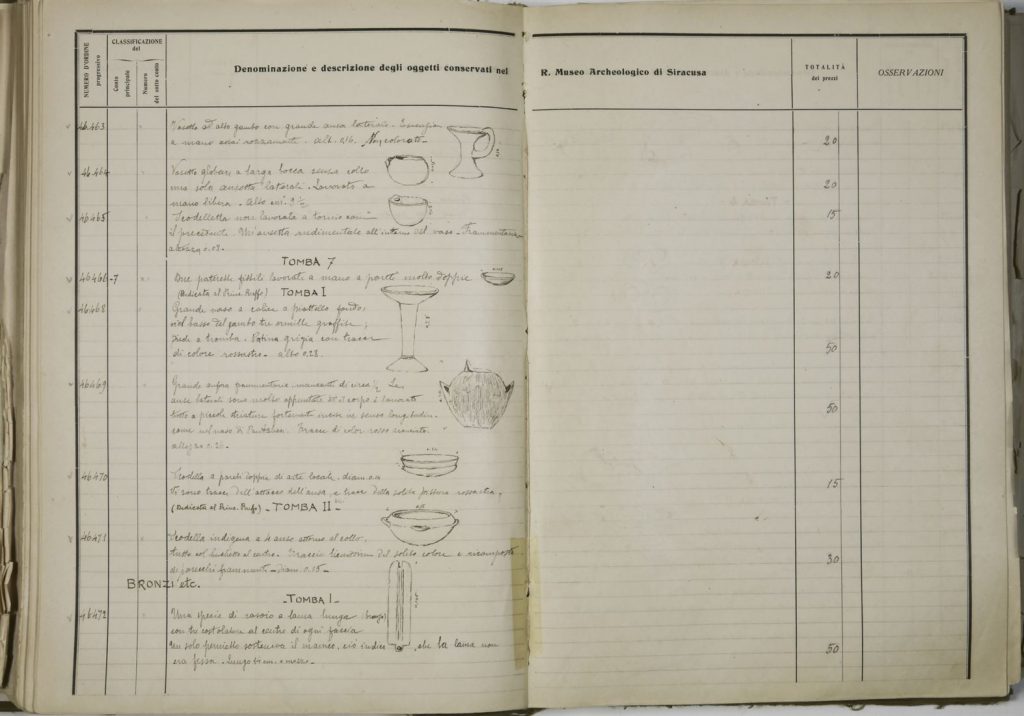 NUMERO D'ORDINE progressivo
CLASSIFICAZIONE del
Conto principale
Numero del sotto conto
Denominazione e descrizione degli oggetti conservati nel R. Museo Archeologico di Siracusa
TOTALITÀ dei prezzi
OSSERVAZIONI
46463 Vasetto ad alto gambo con grande ansa laterale.
a mano assai rozzamente. Alt. 0,16. 20
46464 Vasetto globare, a larga bocca senza collo
una sola ansetta laterale. Lavorato a 20
mano libera. Alto cm. 9 ½
46465 Scodelletta non lavorata a tornio come 15
il precedente. Un'ansetta rudimentale all'interno del vaso. Frammentaria
TOMBA 7
46466-7 Due paterette fittili lavorati a mano a pareti molto doppie 20
(Dedicata al Princ. Ruffo) TOMBA I
46468 Grande vaso a calice a piattello fondo;
nel basso del gambo tre armille graffite;
piede a tromba. Patina grigia con tracce
di colore rossastro. alto 0.28. 50
46469 Grande anfora frammentaria, mancante di circa ½. Le
anse laterali sono molto appuntate ed il corpo è lavorato 50
tutto a piccole striature fortemente incise in senso longitudin.
come nel vaso di Pantalica. Tracce di color rosso
46470 Scodella a pareti doppie di arte locale. diam. 15
Vi sono tracce dell'attacco dell'ansa, e tracce della solita pittura rossastra,
(Dedicata al Princ. Ruffo) - TOMBA II
46471 Scodella indigena a 4 anse attorno al collo,
tutta col del solito colore e ricomposta 30
da parecchi frammenti - Diam. 0.15 -
BRONZI etc.
- TOMBA I -
46472 Una specie di rasoio a lama lunga (bronzo)
con tre costolature al centro di ogni faccia
Un solo pernietto sosteneva il manico, ciò indica che la lama non 50
era fissa. Lungo cm. e mezzo.